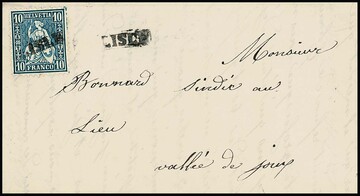 10 HELVETIA 10
10 FRANCO 10
Monsieur
Bonnard Sindic au
Lieu
vallée de joux